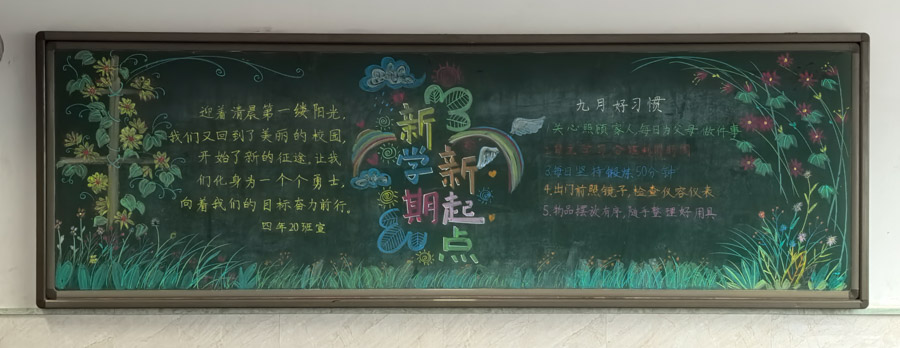 迎着清晨第一缕阳光，
我们又回到了美丽的校园，
开始了新的征途，让我
们化身为一个个勇士，
向着我们的目标奋力前行。
四年20班宣
新学期
新起点
九月好习惯
关心照顾家人每日为父母做件事
3.每日坚持锻炼50分钟
4.出门前照镜子,检查仪容仪表
5.物品摆放有序,随手整理好用具